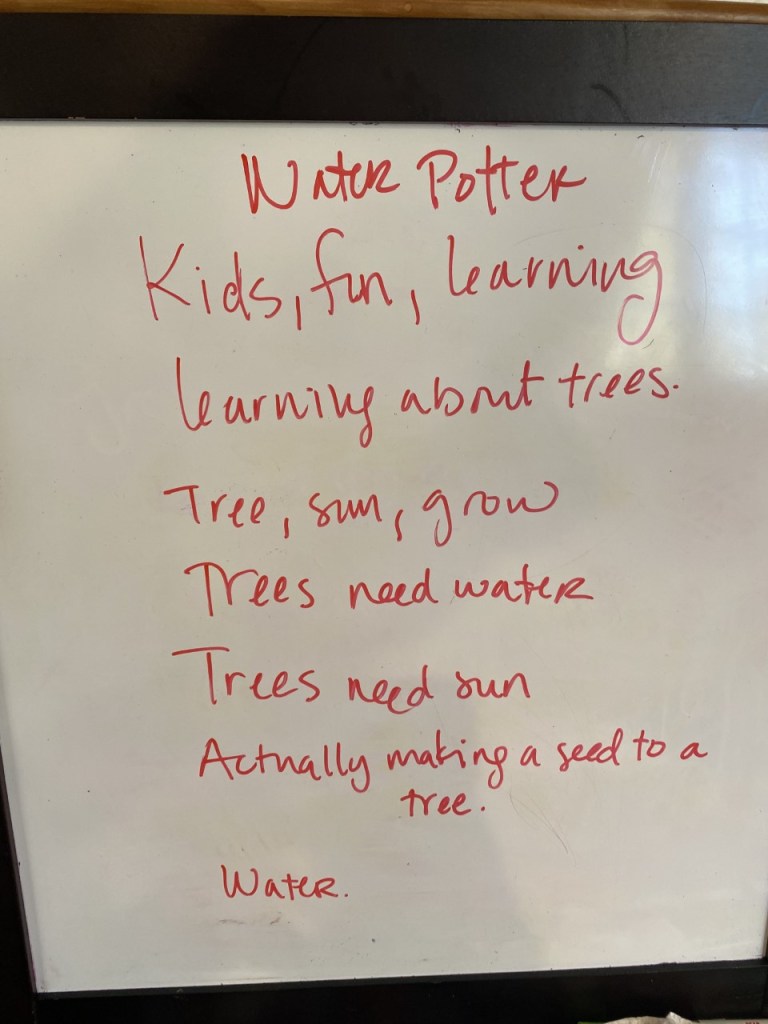 Water Potter
Kids, fun, learning
learning about trees.
Tree, sun, grow
Trees need water
Trees need sun
Actually making a seed to a
tree.
Water.